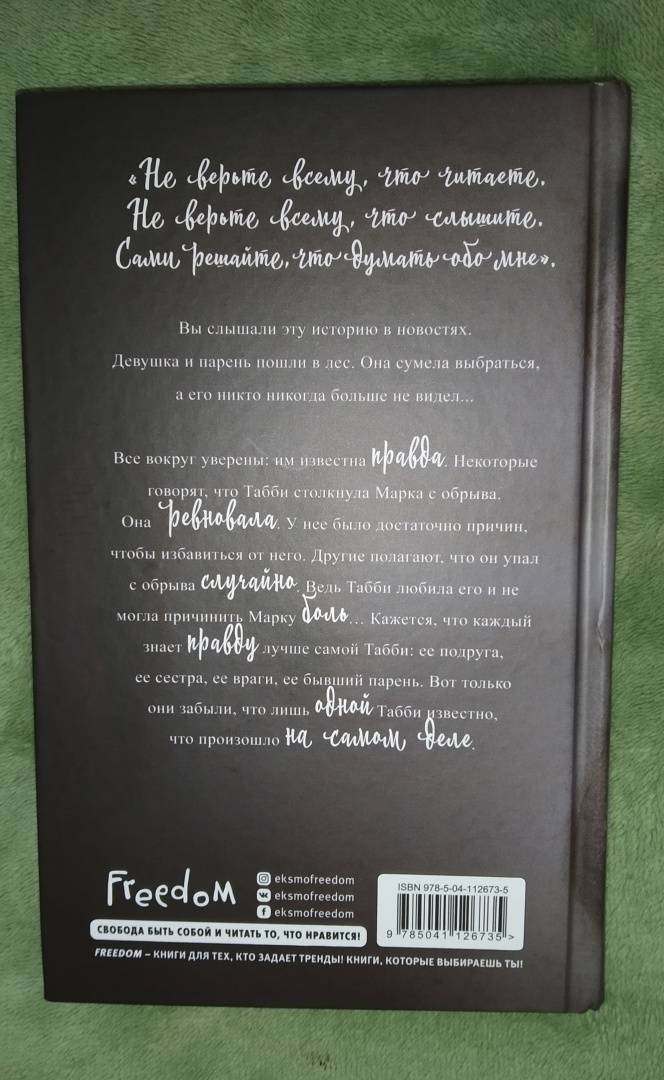 «Не верьте всему, что читаете.
Не верьте всему, что слышите.
Сами решайте, что думать обо мне».
Вы слышали эту историю в новостях.
Девушка и парень пошли в лес. Она сумела выбраться,
а его никто никогда больше не видел...
Все вокруг уверены: им известна правда. Некоторые
говорят, что Табби столкнула Марка с обрыва.
Она ревновала. У нее было достаточно причин,
чтобы избавиться от него. Другие полагают, что он упал
с обрыва случайно. Ведь Табби любила его и не
могла причинить Марку боль... Кажется, что каждый
знает правду лучше самой Табби: ее подруга,
ее сестра, ее враги, ее бывший парень. Вот только
они забыли, что лишь одной Табби известно,
что произошло на самом деле.
Freedom
eksmofreedom
eksmofreedom
eksmofreedom
СВОБОДА БЫТЬ СОБОЙ И ЧИТАТЬ ТО, ЧТО НРАВИТСЯ!
FREEDOM – КНИГИ ДЛЯ ТЕХ, КТО ЗАДАЕТ ТРЕНДЫ! КНИГИ, КОТОРЫЕ ВЫБИРАЕШЬ ТЫ!
ISBN 978-5-04-112673-5
9 785041 126735 >